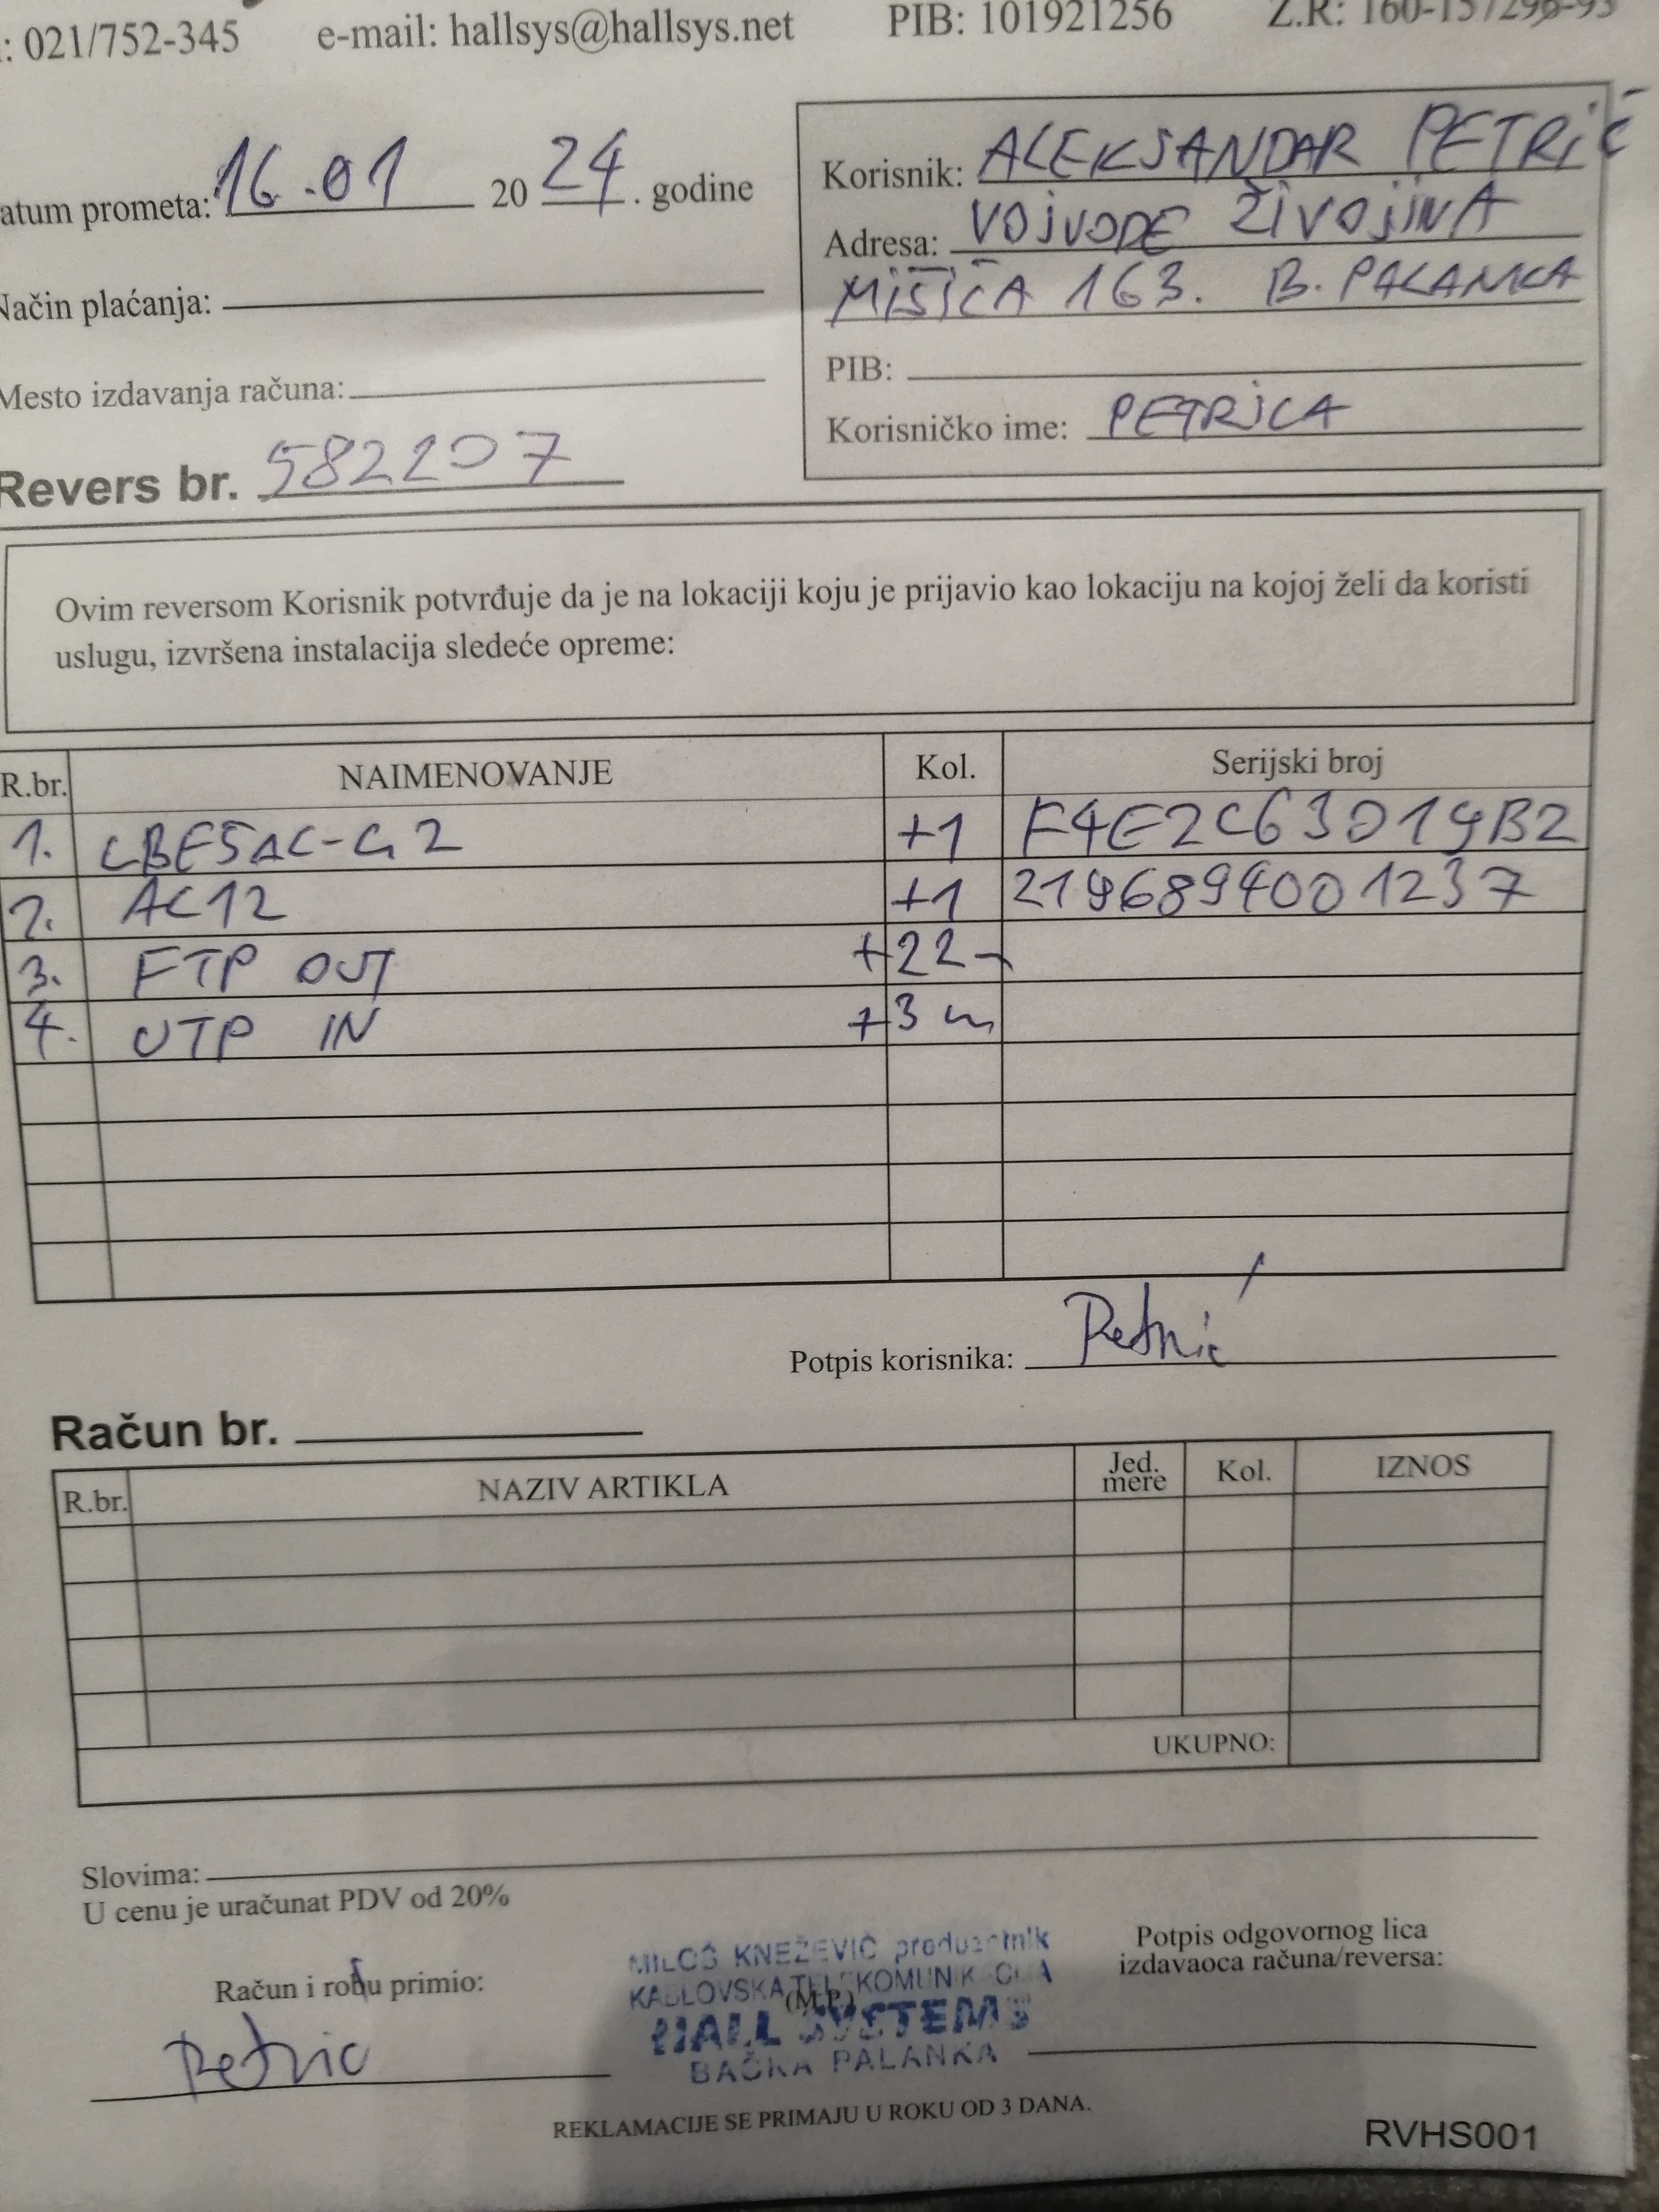 : 021/752-345 e-mail: hallsys@hallsys.net PIB: 101921256 Z.R: 160-157296-93
atum prometa: 16.01 2024. godine
Korisnik: ALEKSANDAR PETRIĆ
Adresa: VOJVODE ŽIVOJINA
MIŠIĆA 163. B. PALANKA
Način plaćanja:
PIB:
Mesto izdavanja računa:
Korisničko ime: PETRICA
Revers br. 582207
Ovim reversom Korisnik potvrđuje da je na lokaciji koju je prijavio kao lokaciju na kojoj želi da koristi
uslugu, izvršena instalacija sledeće opreme:
R.br. NAIMENOVANJE Kol. Serijski broj
1. LBE5AC-G2 +1 F4E2C63019B2
2. AC12 +1 2196894001237
3. FTP OUT +22
4. UTP IN +3 m
Potpis korisnika: Petrić
Račun br.
R.br. NAZIV ARTIKLA Jed. mere Kol. IZNOS
UKUPNO:
Slovima:
U cenu je uračunat PDV od 20%
Račun i robu primio:
Petrić
MILOŠ KNEŽEVIĆ preduzetnik
KABLOVSKA TELEKOMUNIKACIJA
(M.P.)
HALL SYSTEMS
BAČKA PALANKA
Potpis odgovornog lica
izdavaoca računa/reversa:
REKLAMACIJE SE PRIMAJU U ROKU OD 3 DANA.
RVHS001